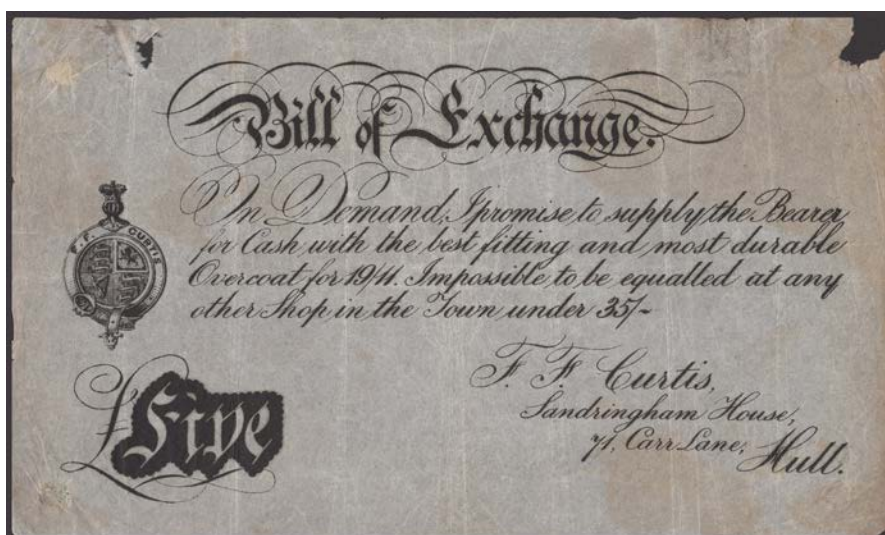 Bill of Exchange.
On Demand, I promise to supply the Bearer
for Cash with the best fitting and most durable
Overcoat for 19/11. Impossible to be equalled at any
other Shop in the Town under 35/-
F. F. CURTIS
£Five
F. F. Curtis,
Sandringham House,
71, Carr Lane,
Hull.